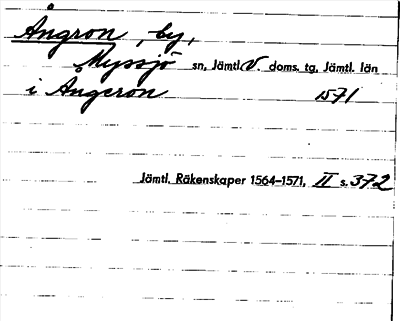 Ångron, by,
Myssjö sn, Jämtl. V. doms. tg, Jämtl. län
i Ångeron 1571
Jämtl. Räkenskaper 1564-1571, II s. 372